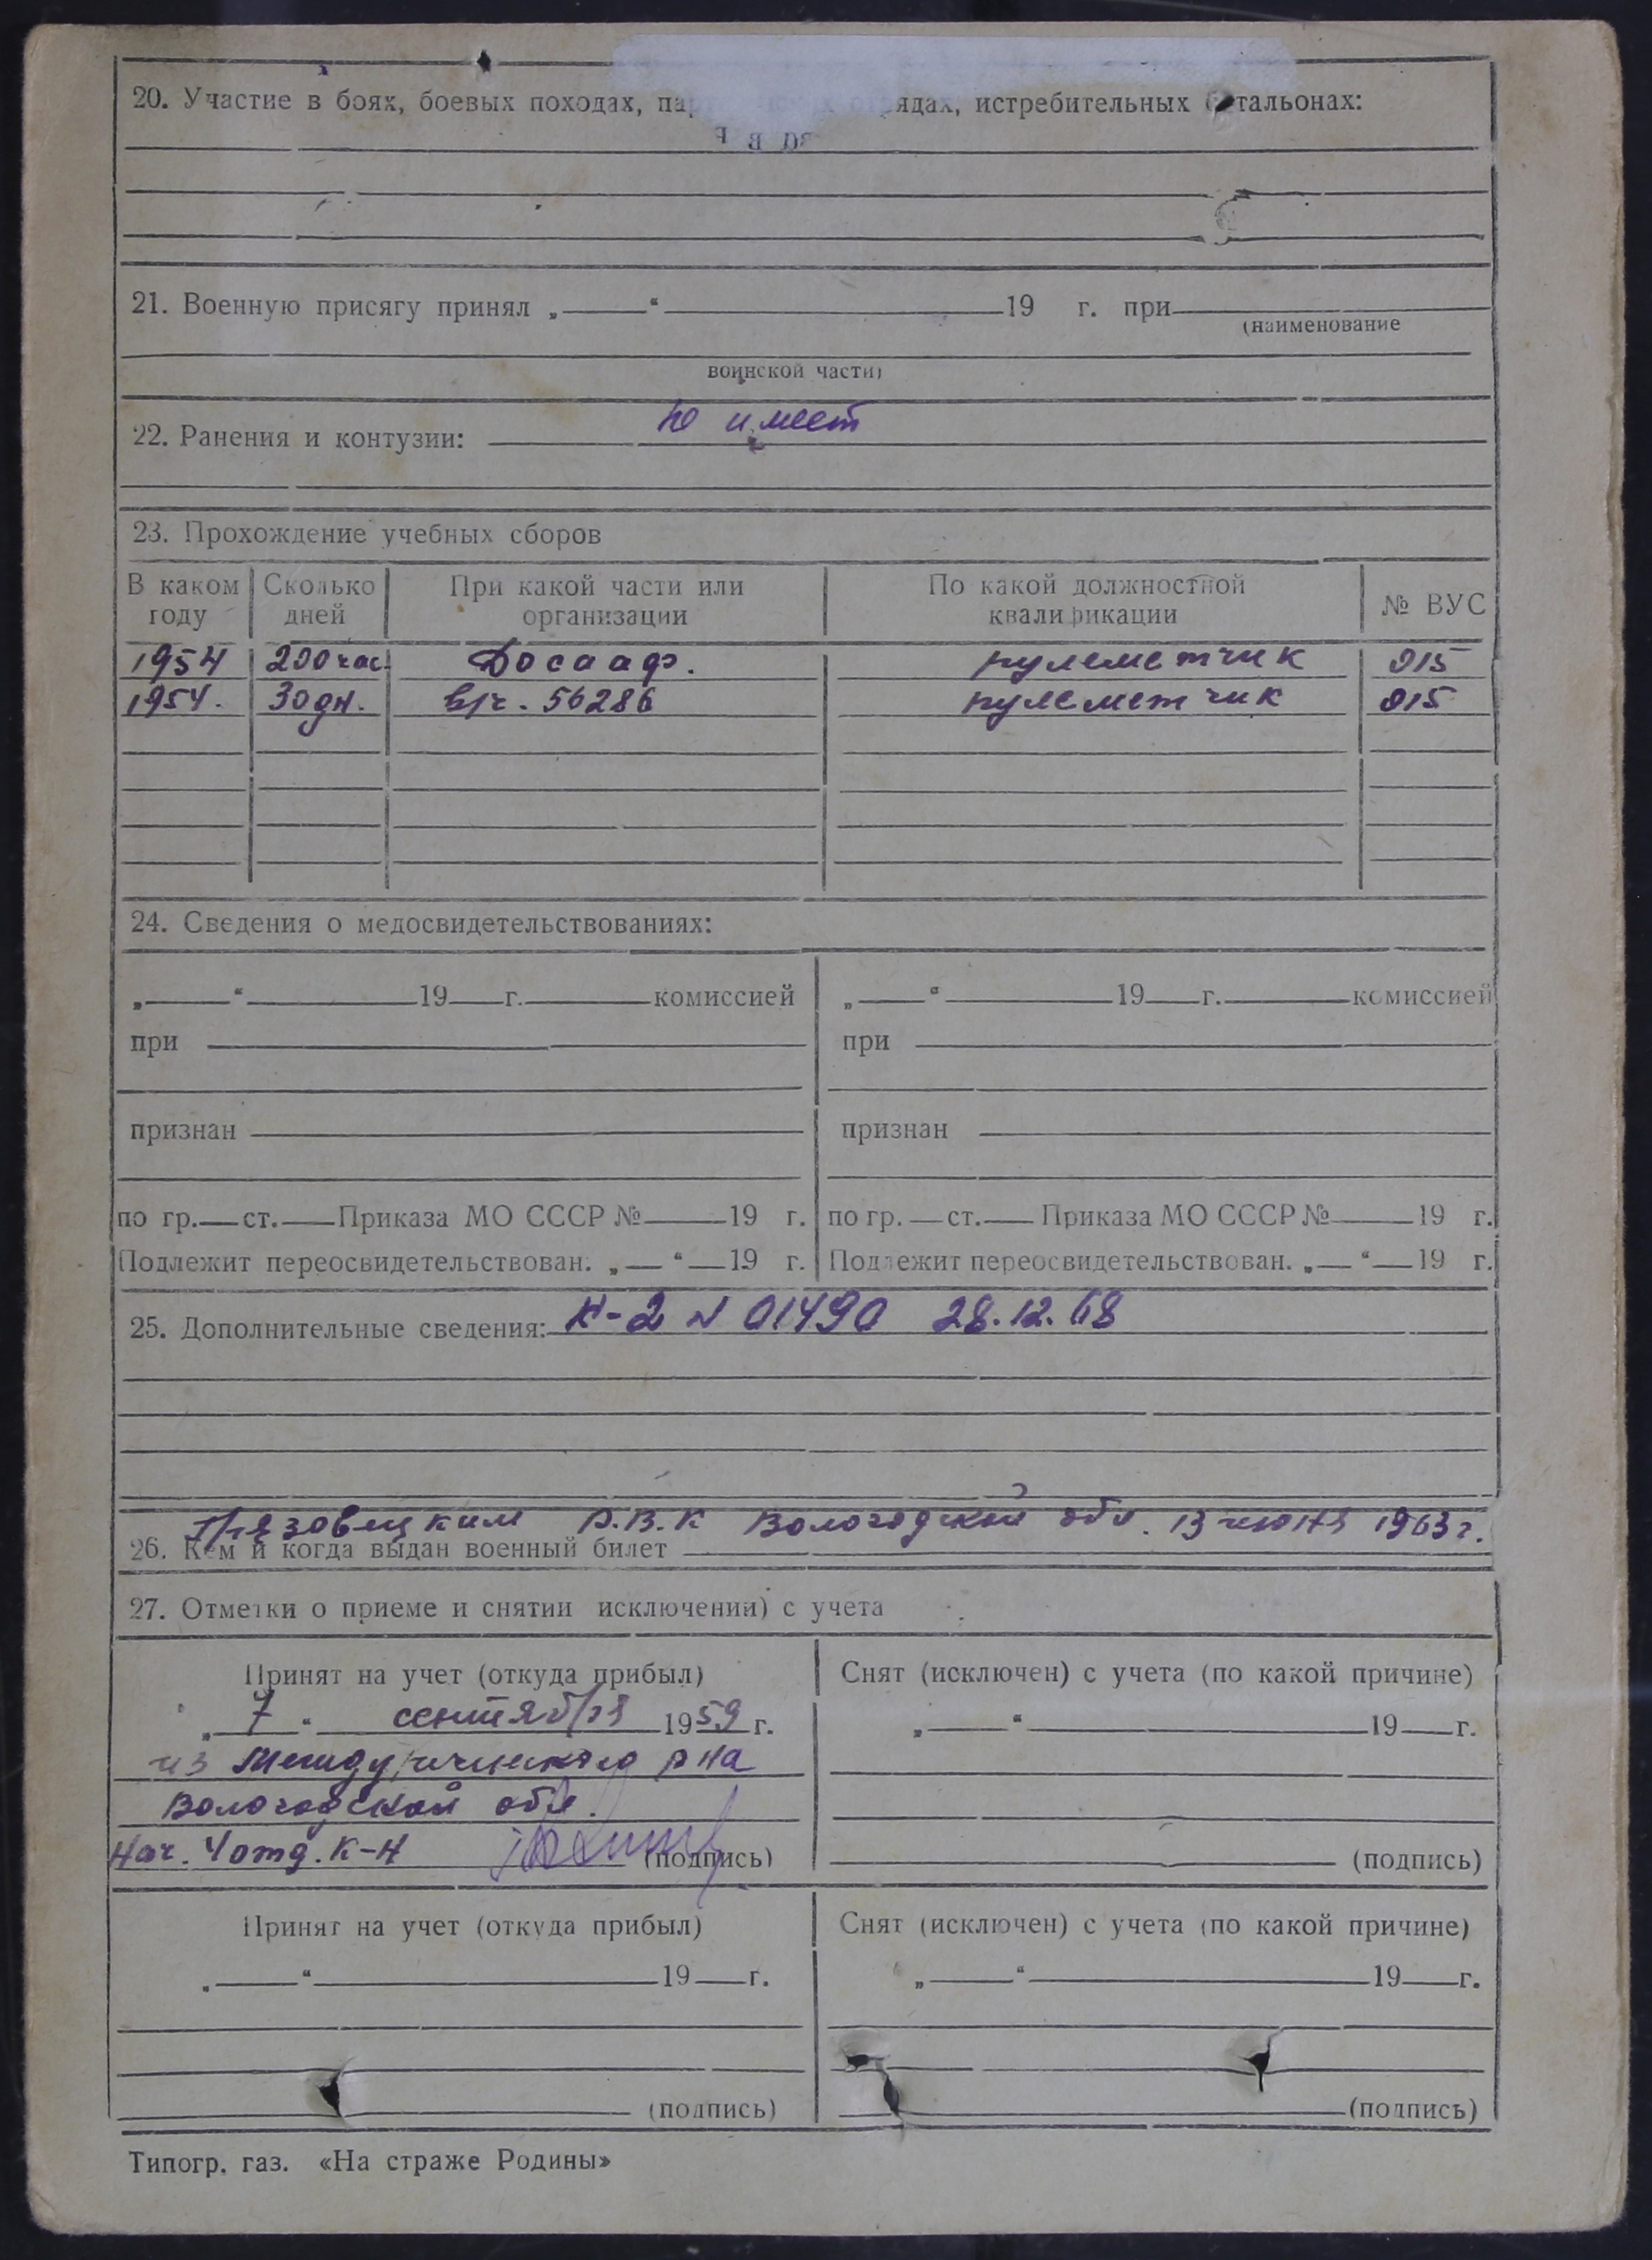 20. Участие в боях, боевых походах, ядах, истребительных тальонах:
21. Военную присягу принял „ “ 19 г. при
(наименование
воинской части)
не имеет
22. Ранения и контузии:
23. Прохождение учебных сборов
В каком году Сколько дней При какой части или организации По какой должностной квалификации № ВУС
1954 200 час. Досааф. пулеметчик 015
1954. 30 дн. в/ч. 56286 пулеметчик 015
24. Сведения о медосвидетельствованиях:
„ “ 19 г. комиссией „ “ 19 г. комиссией
при при
признан признан
по гр. ст. Приказа МО СССР № 19 г. по гр. ст. Приказа МО СССР № 19 г.
Подлежит переосвидетельствован. „ “ 19 г. Подлежит переосвидетельствован. „ “ 19 г.
25. Дополнительные сведения: К-2 N 01490 28.12.68
Грязовецким Р.В.К Вологодской обл. 13 1963 г.
26. Кем и когда выдан военный билет
27. Отметки о приеме и снятии исключении) с учета
Принят на учет (откуда прибыл) Снят (исключен) с учета (по какой причине)
„ 7 “ сентября 1959 г. „ “ 19 г.
из Междуреченского р-на
Вологодской обл.
Нач. 4 отд. К-Н (подпись) (подпись)
Принят на учет (откуда прибыл) Снят (исключен) с учета (по какой причине)
„ “ 19 г. „ “ 19 г.
(подпись) (подпись)
Типогр. газ. «На страже Родины»